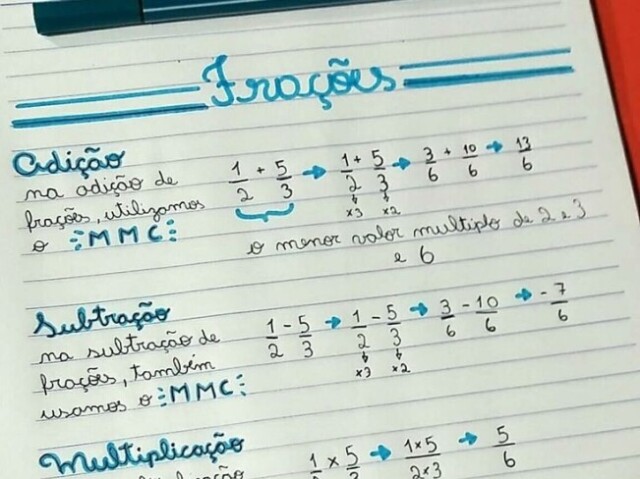 Frações
Adição
na adição de
frações, utilizamos
o MMC
1/2 + 5/3 → 1/2 + 5/3 → 3/6 + 10/6 → 13/6
x3 x2
o menor valor multiplo de 2 e 3
e 6
Subtração
na subtração de
frações, também
usamos o MMC
1/2 - 5/3 → 1/2 - 5/3 → 3/6 - 10/6 → -7/6
x3 x2
Multiplicação
1/2 x 5/3 → 1x5/2x3 → 5/6